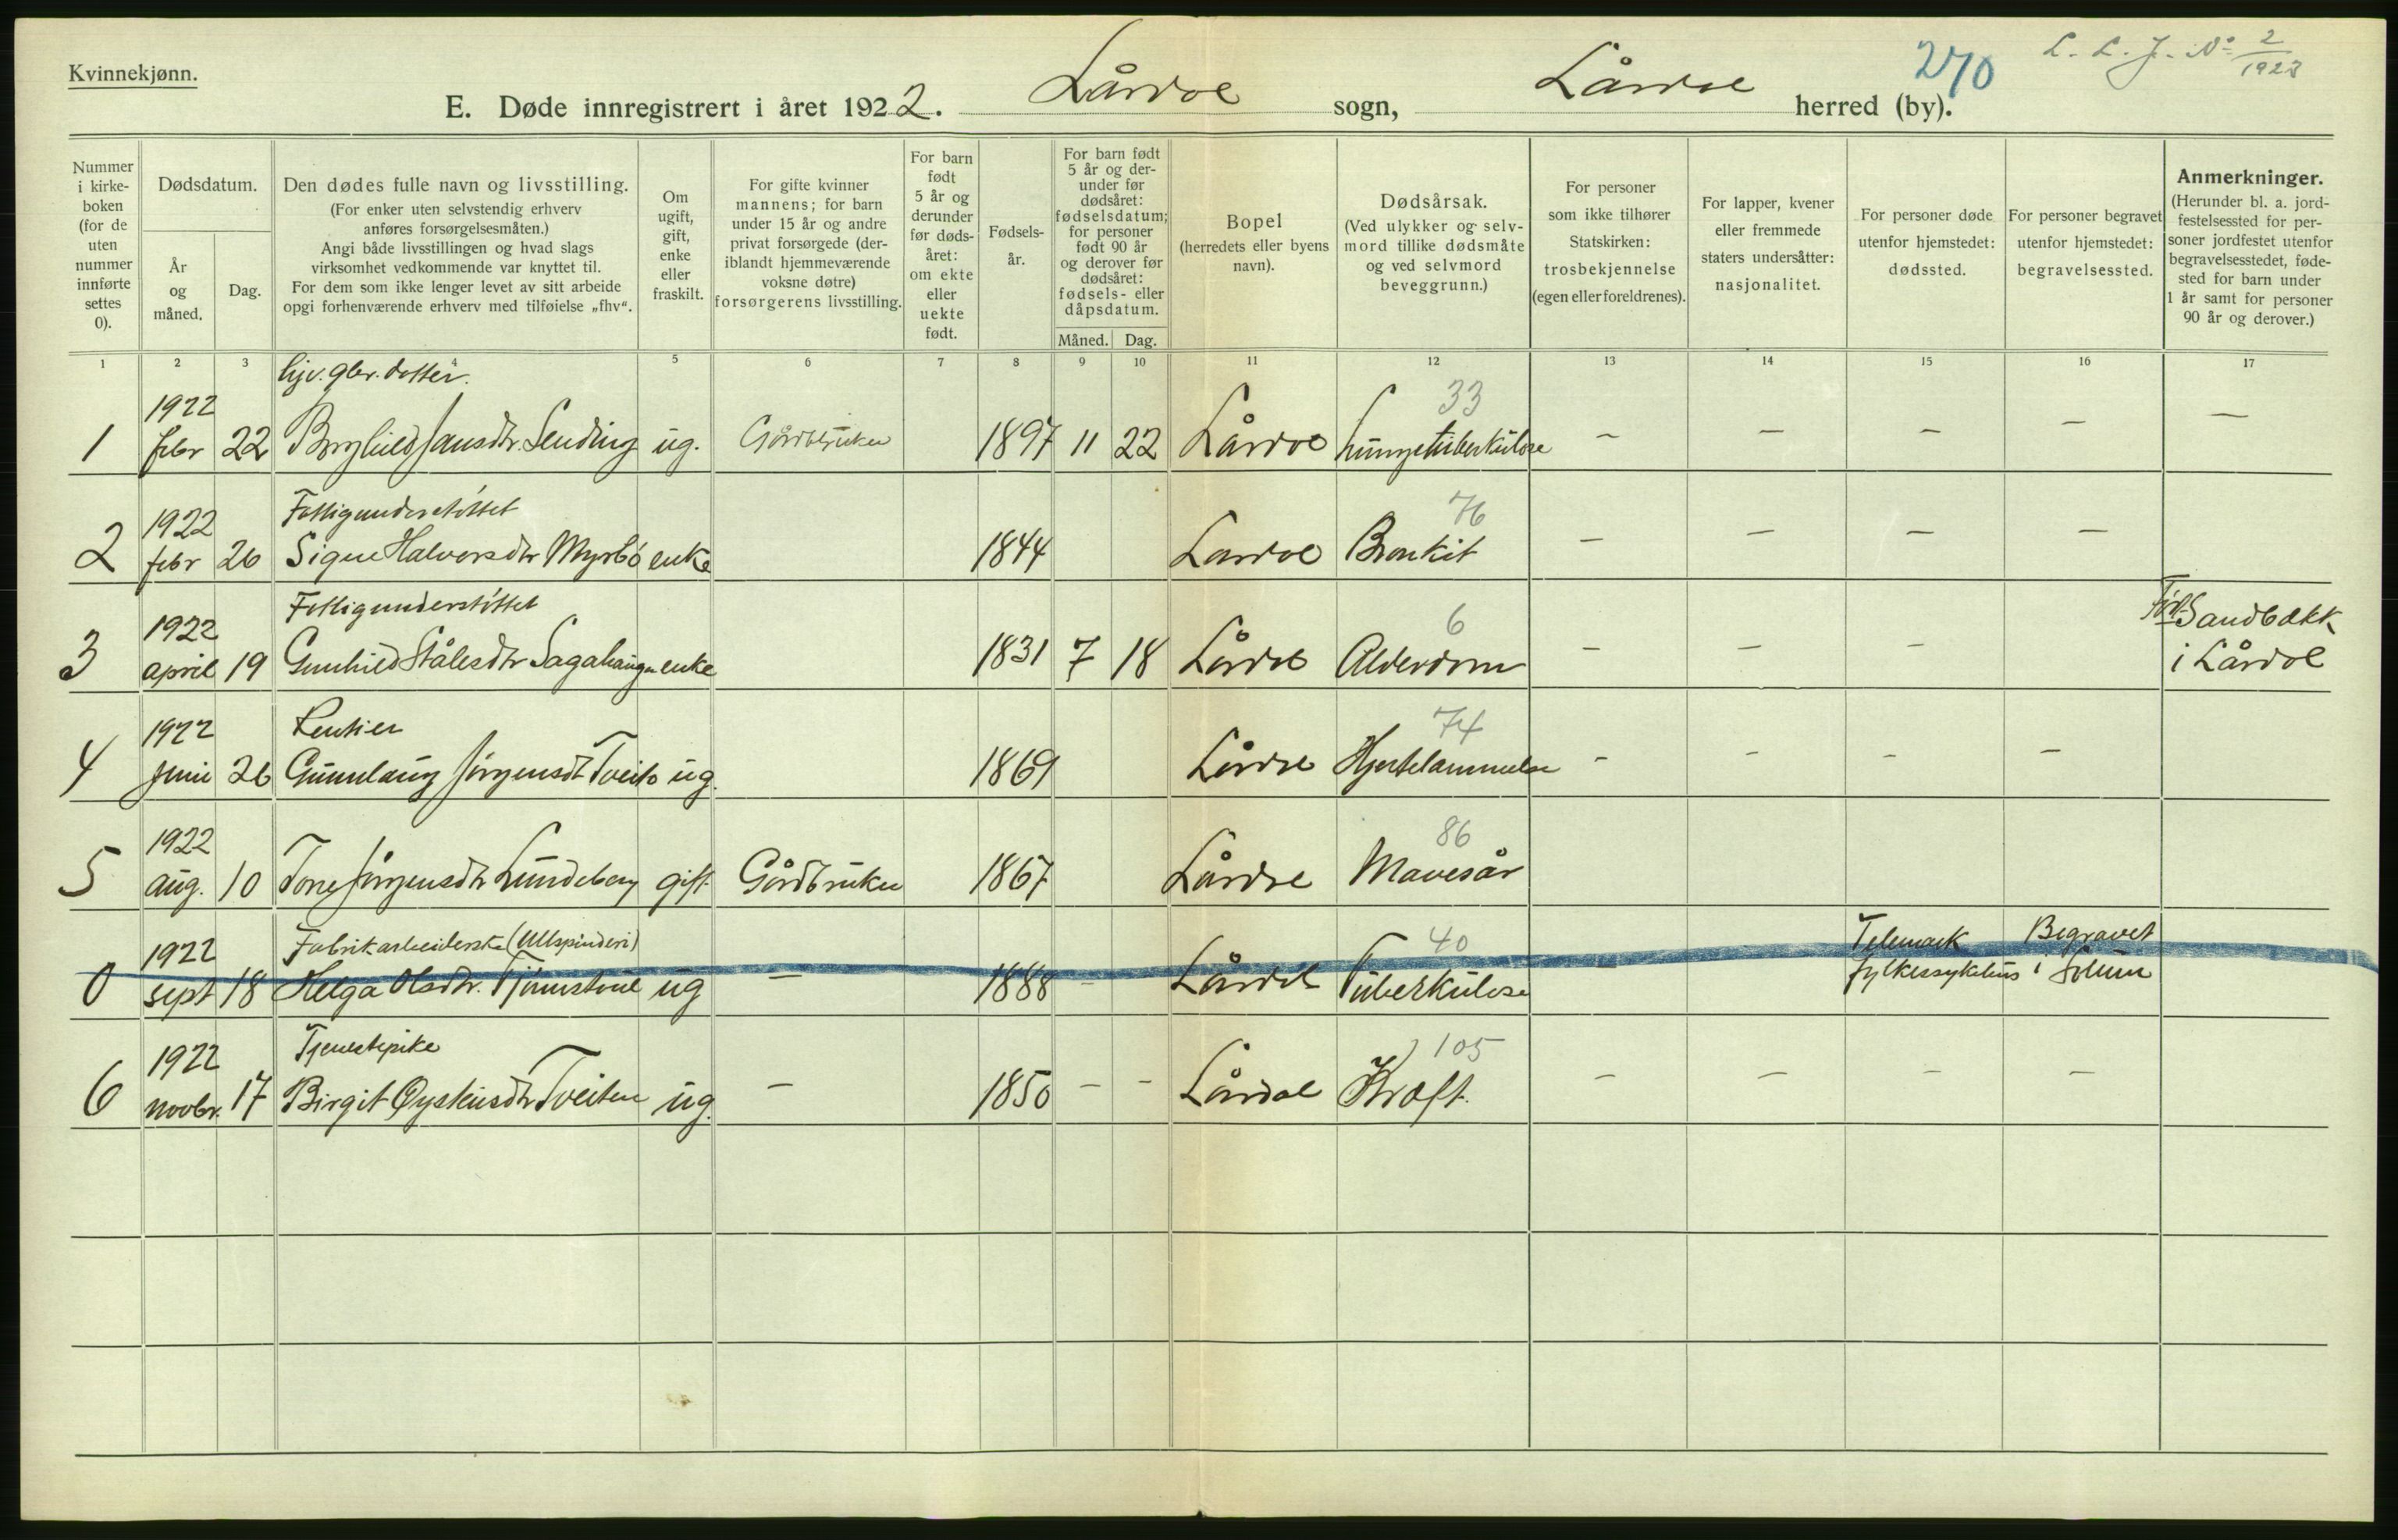 Kvinnekjønn.
270
L. L. J. No 2/1923
E. Døde innregistrert i året 1922. Lårdal sogn, Lårdal herred (by).
Nummer i kirke-boken (for de uten nummer innførte settes 0).
Dødsdatum.
År og måned.
Dag.
Den dødes fulle navn og livsstilling.
(For enker uten selvstendig erhverv anføres forsørgelsesmåten.)
Angi både livsstillingen og hvad slags virksomhet vedkommende var knyttet til.
For dem som ikke lenger levet av sitt arbeide opgi forhenværende erhverv med tilføielse „fhv“.
Om ugift, gift, enke eller fraskilt.
For gifte kvinner mannens; for barn under 15 år og andre privat forsørgede (deriblandt hjemmeværende voksne døtre) forsørgerens livsstilling.
For barn født 5 år og derunder før dødsåret: om ekte eller uekte født.
Fødsels-år.
For barn født 5 år og derunder før dødsåret: fødselsdatum; for personer født 90 år og derover før dødsåret: fødsels- eller dåpsdatum.
Måned. Dag.
Bopel (herredets eller byens navn).
Dødsårsak. (Ved ulykker og selvmord tillike dødsmåte og ved selvmord beveggrunn.)
For personer som ikke tilhører Statskirken: trosbekjennelse (egen eller foreldrenes).
For lapper, kvener eller fremmede staters undersåtter: nasjonalitet.
For personer døde utenfor hjemstedet: dødssted.
For personer begravet utenfor hjemstedet: begravelsessted.
Anmerkninger. (Herunder bl. a. jordfestelsessted for personer jordfestet utenfor begravelsesstedet, fødested for barn under 1 år samt for personer 90 år og derover.)
1 2 3 4 5 6 7 8 9 10 11 12 13 14 15 16 17
hjv. gbr. datter. 33
1 1922 febr 22 Borghild Jansdtr. Lending ug. Gårdbruker 1897 11 22 Lårdal Lungetuberkulose – – – – –
Fattigunderstøttet 76
2 1922 febr 26 Signe Halvorsdtr Myrbö enke 1844 Lardal Bronkit – – – –
Fattigunderstøttet 6
3 1922 april 19 Gunhild Stålesdtr Sagahaugen enke 1831 7 18 Lårdal Alderdom – – – Fød. Sandbækk i Lårdal
Rentier 74
4 1922 juni 26 Gunnlaug Jørgensdt Tveito ug. 1869 Lårdal Hjertelammelse – – – –
86
5 1922 aug. 10 Tone Jørgensdtr Lundeberg gift Gårdbruker 1867 Lårdal Mavesår
Fabrikarbeiderske (Ullspinderi) 40
0 1922 sept 18 Helga Olsdtr. Tjönnstaul ug – 1888 – Lårdal Tuberkulose – Telemark fylkessykehus Begravet i Solum
Tjenestepike 105
6 1922 novbr. 17 Birgit Øysteinsdtr Tveiten ug. – 1850 – – Lårdal Kræft. – – – –